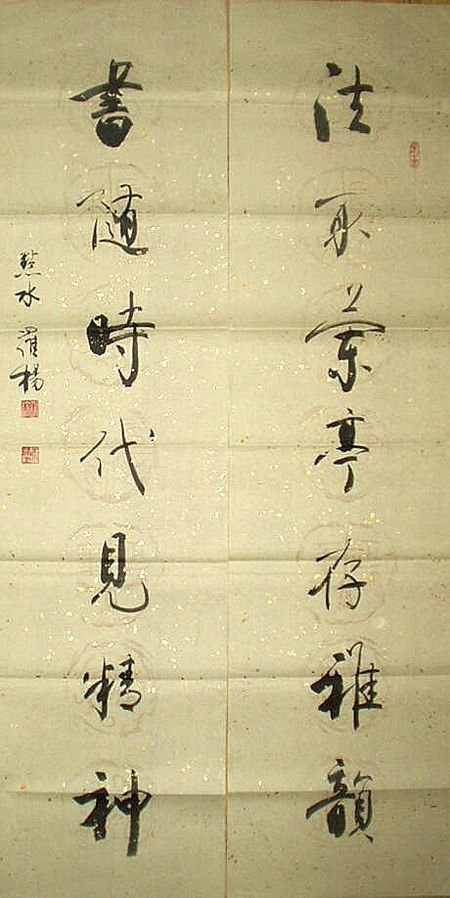 法取蘭亭存雅韻
書隨時代見精神
水 羅楊